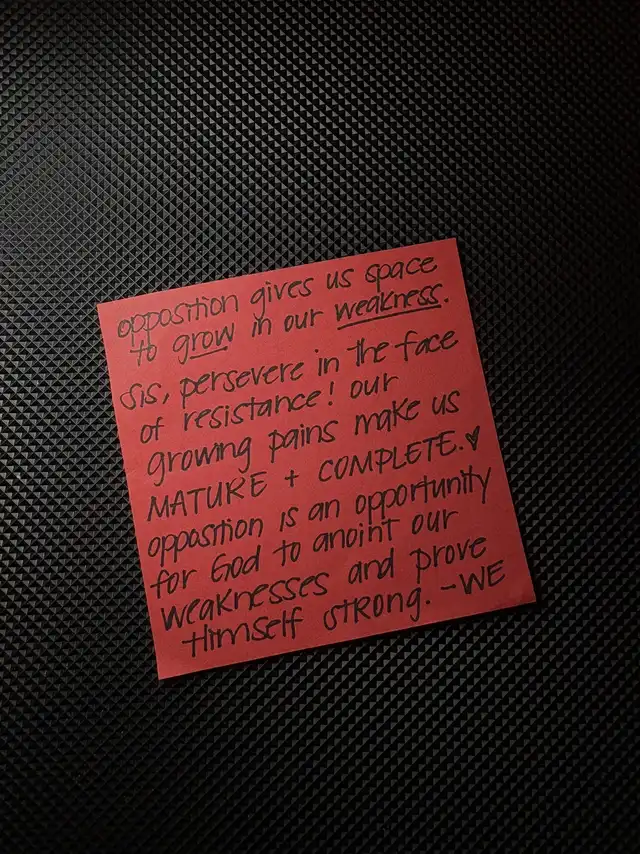 opposition gives us space
to grow in our weakness.
sis, persevere in the face
of resistance! our
growing pains make us
MATURE + COMPLETE.♥
opposition is an opportunity
for God to anoint our
weaknesses and prove
Himself strong. -WE